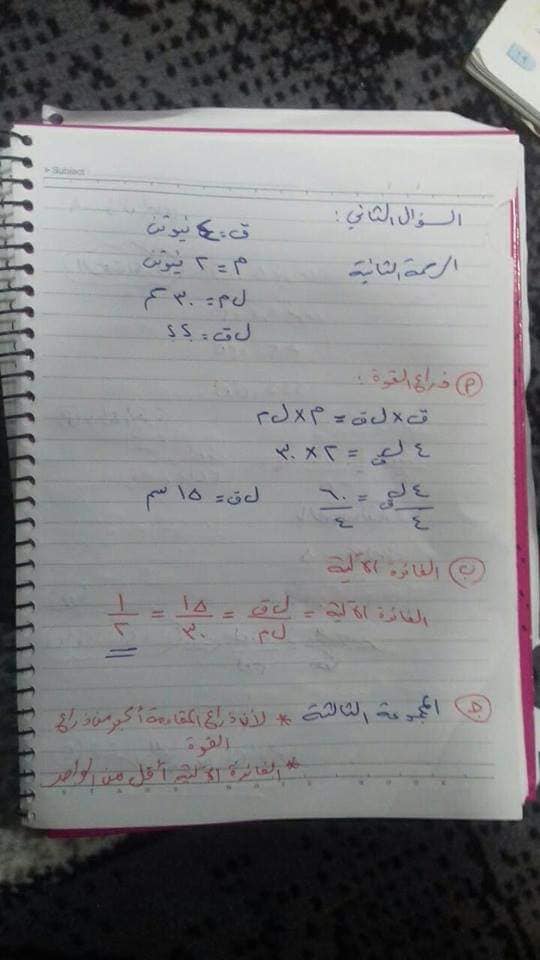 Subject
السؤال الثاني :
ق = ٤ نيوتن
الرسمة الثانية
م = ٢ نيوتن
لم = ٣٠ سم
لق = ؟؟
أ ذراع القوة :
ق × لق = م × لم
٤ لق = ٢ × ٣٠
٤ لق / ٤ = ٦٠ / ٤ لق = ١٥ سم
ب الفائدة الآلية
الفائدة الآلية = لق / لم = ١٥ / ٣٠ = ١ / ٢
ج المجموعة الثالثة * لأن ذراع المقاومة أكبر من ذراع
القوة
* الفائدة الآلية أقل من الواحد